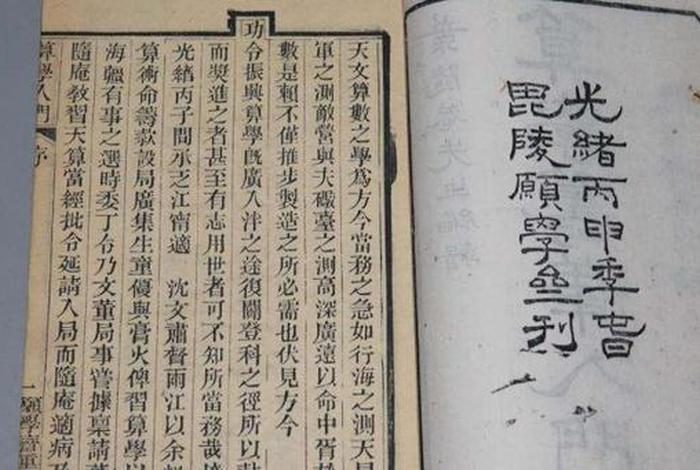 光緒丙申季旾
毘陵願學亝刊
天文算數之學爲方今當務之急如行海之測天星
軍之測敵營與夫礮臺之測高深廣遠以命中胥
數是賴不僅推步製造之所必需也伏見方今
功令振興算學旣廣入泮之途復闢登科之徑所以
而奬進之者甚至有志用世者可不知所當務哉
光緒丙子間承之江甯適 沈文肅督兩江以余
算術命籌款設局廣集生童優與膏火俾習算學以
海疆有事之選時委丁台乃文董局事嘗據稟請
隨庵教習天算當經批令延請入局而隨庵適病
算學入門 序 一 願學齋